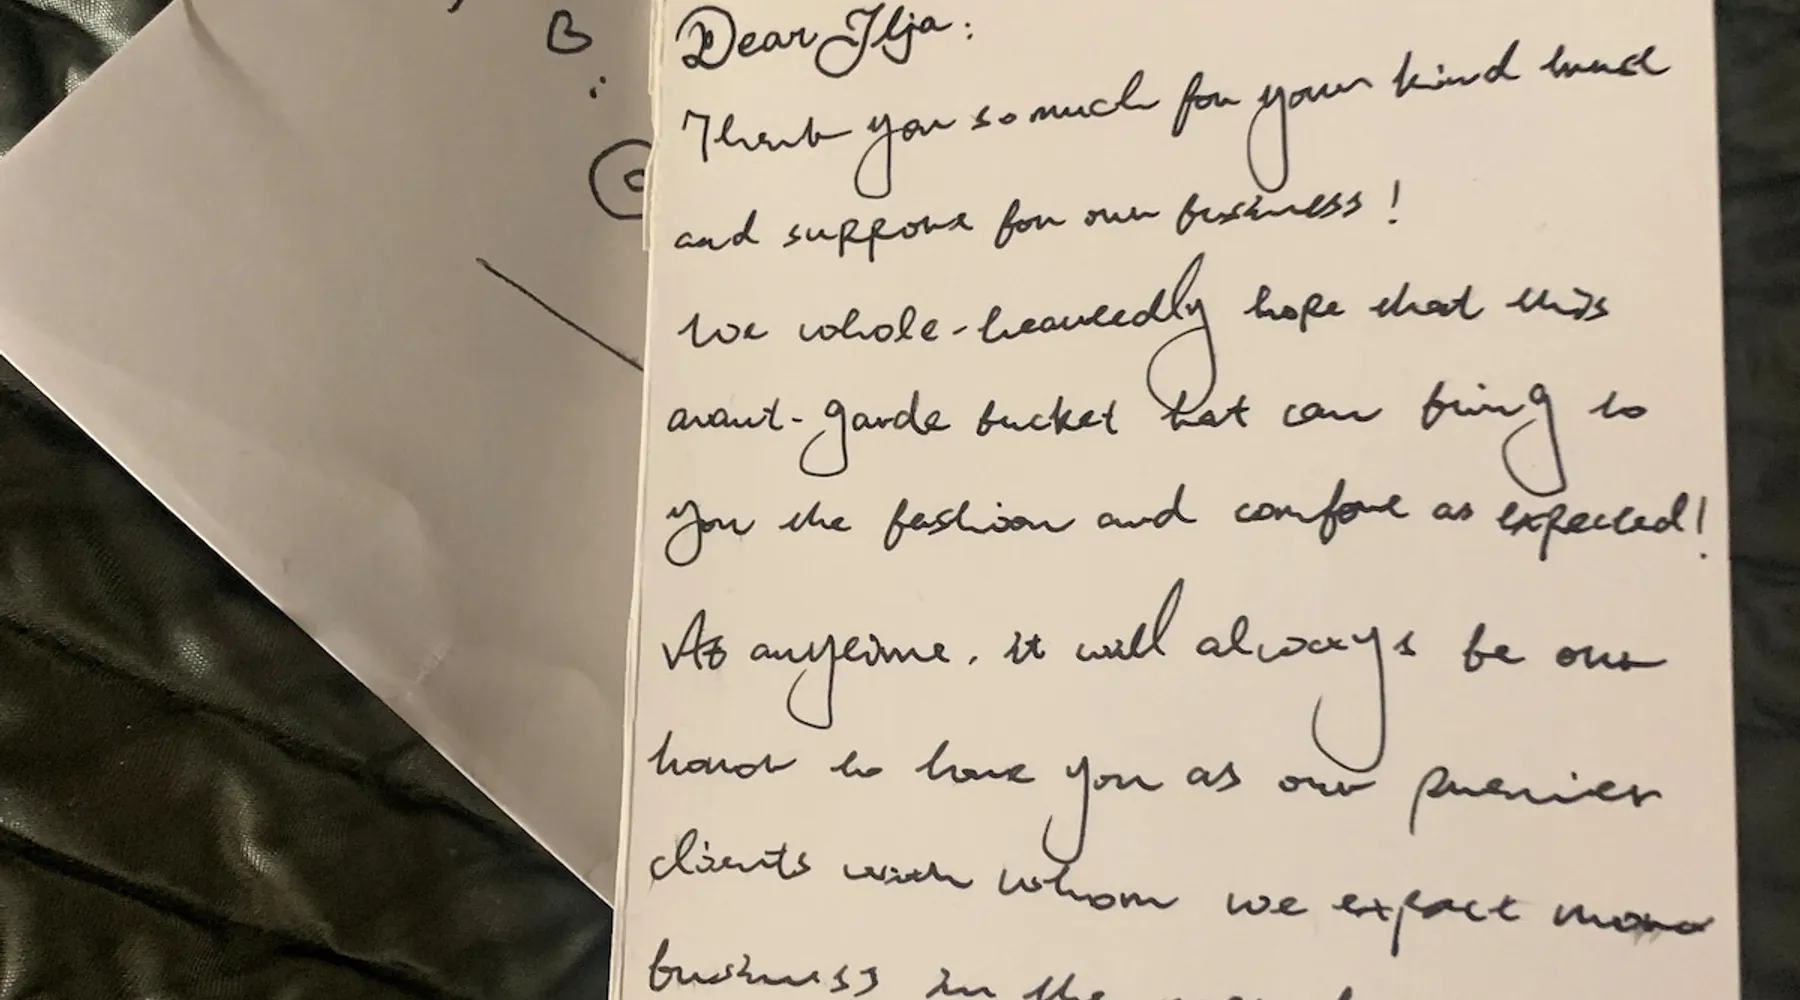 Dear Ilja:
Thank you so much for your kind trust
and support for our business!
We whole-heartedly hope that this
avant-garde bucket hat can bring to
you the fashion and comfort as expected!
At anytime, it will always be our
honor to have you as our premier
clients with whom we expect more
business in the